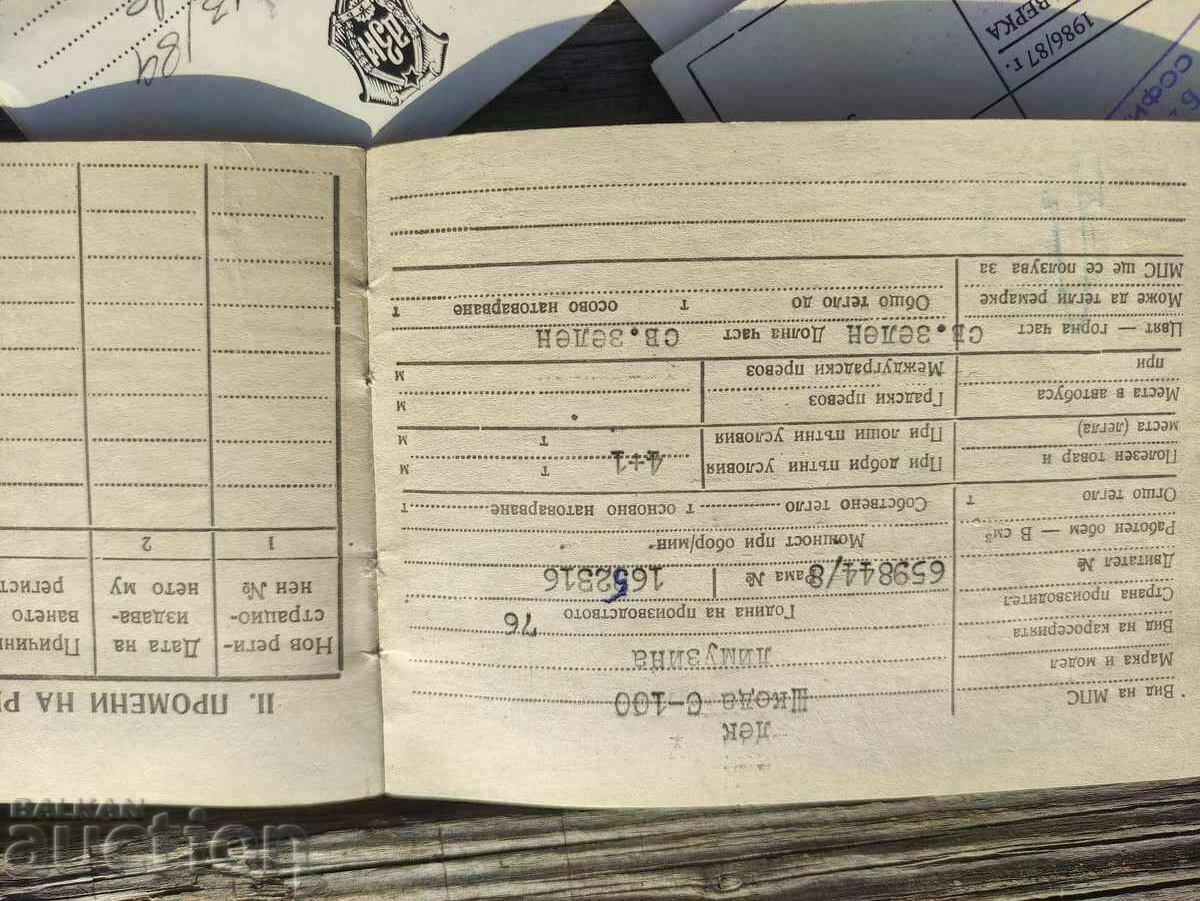 лек
Вид на МПС
Шкода С-100
Марка и модел
лимузина
Вид на каросерията
Страна производител
Година на производството 76
Двигател № 659844/8 Рама № 1652316
Работен обем — В см³ Мощност при обор/мин
Огщо тегло т Собствено тегло т основно натоварване т
Полезен товар и места (легла)
При добри пътни условия 4+1 т м
При лоши пътни условия т м
Места в автобуса при
Градски превоз м
Междуградски превоз м
Цвят — горна част св.зелен Долна част св.зелен
Може да тегли ремарке Общо тегло до т осово натоварване т
МПС ще се ползува за
II. ПРОМЕНИ НА
Нов реги-
страцио-
нен №
Дата на
издава-
нето му
Причини
ването
регист
1 2
ДЗИ
ВЕРКА
1986/87 г.
СОФИ
13
/89
BALKAN
auction